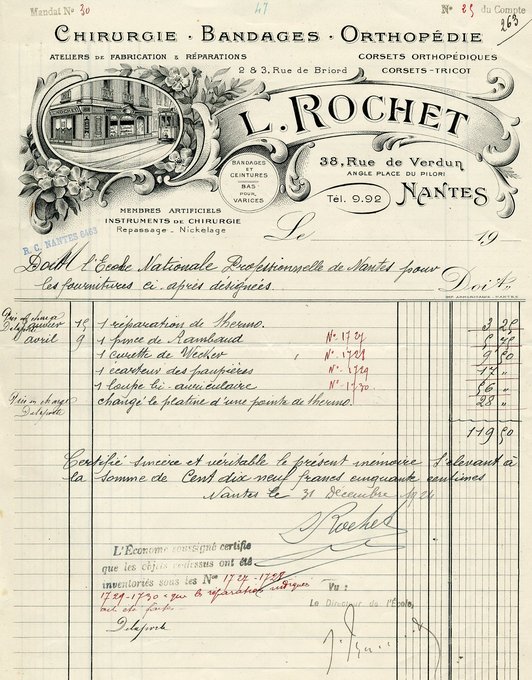 Mandat No 30
47
No 25 du Compte
263
CHIRURGIE · BANDAGES · ORTHOPÉDIE
ATELIERS DE FABRICATION & RÉPARATIONS
CORSETS ORTHOPÉDIQUES
2 & 3, Rue de Briord
CORSETS-TRICOT
L. ROCHET
38, Rue de Verdun
ANGLE PLACE DU PILORI
BANDAGES
ET
CEINTURES
BAS
POUR
VARICES
Tél. 9.92
NANTES
MEMBRES ARTIFICIELS
INSTRUMENTS DE CHIRURGIE
Repassage - Nickelage
R. C. NANTES 6463
Le 19
Doit l'Ecole Nationale Professionnelle de Nantes pour
les fournitures ci-après désignées.
Doit
Pris en charge
Delaporte
janvier 15 1 réparation de thermo. 3 25
avril 9 1 pince de Rambaud No 1727 5 75
1 curette de Wecker No 1728 9 50
1 écarteur des paupières No 1729 17 "
1 loupe bi-auriculaire No 1730. 56 "
Pris en charge
Delaporte
changé le platine d'une pointe de thermo. 28 "
119 50
Certifié sincère et véritable le présent mémoire s'élevant à
la somme de Cent dix neuf francs cinquante centimes
Nantes le 31 Décembre 1924
Rochet
L'Econome soussigné certifie
que les objets cidessus ont été
inventoriés sous les Nos 1727-1728
1729-1730 que les réparations indiquées
ont été faites
Delaporte
Vu :
Le Directeur de l'Ecole,